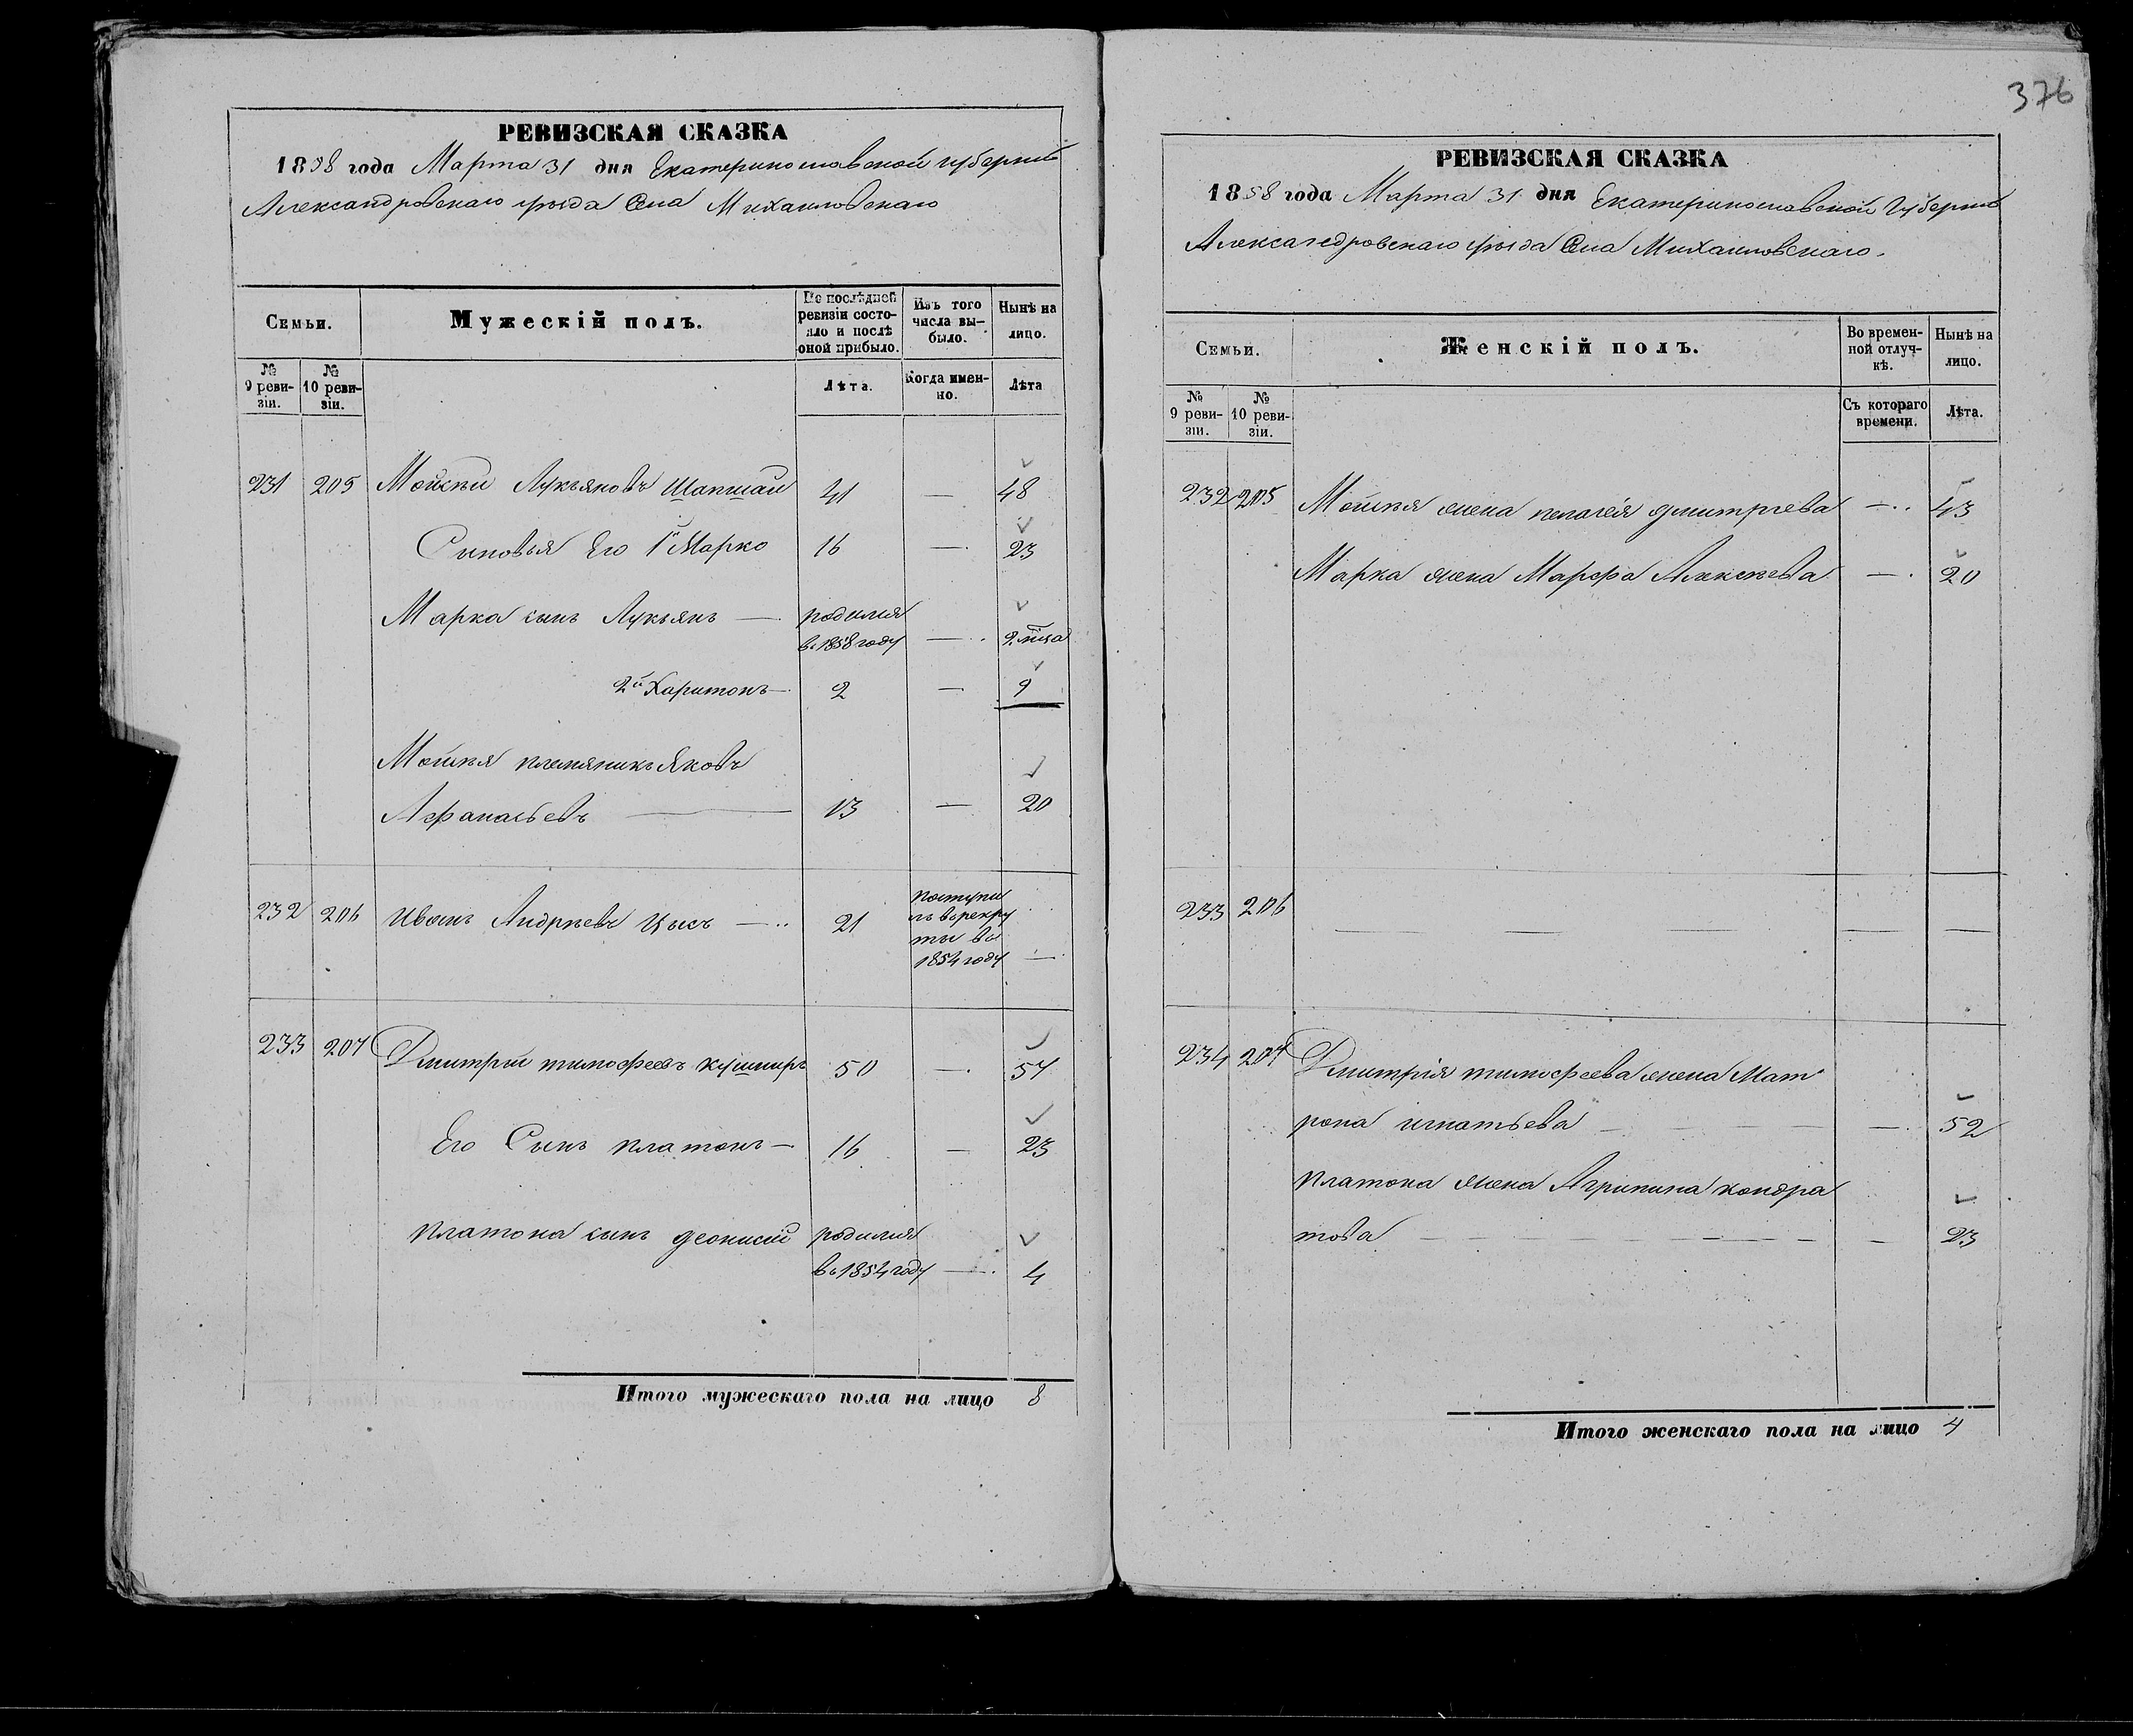 376
РЕВИЗСКАЯ СКАЗКА
1858 года Марта 31 дня Екатеринославской губерніи
Александровскаго уѣзда Села Михайловскаго
Семьи.
Мужескій полъ.
По послѣдней ревизіи состояло и послѣ оной прибыло.
Изъ того числа выбыло.
Нынѣ на лицо.
№ 9 ревизіи.
№ 10 ревизіи.
Лѣта.
Когда именно.
Лѣта
231 205 Мойсѣй Лукьяновъ Шапшай 41 — 48
Сыновья Его 1й Марко 16 — 23
Марка сынъ Лукьянъ — родился
въ 1858 году — 2 мѣсца
2й Харитонъ — 2 — 9
Мойсѣя племяникъ Яковъ
Афанасьевъ — 13 — 20
232 206 Иванъ Андрѣевъ Цысъ — 21 поступи
лъ въ рекру
ты въ
1854 году —
233 207 Дмитрій тимофеевъ кушниръ 50 — 57
Его Сынъ платонъ — 16 — 23
платона сынъ деонисій родился
въ 1854 году — 4
Итого мужескаго пола на лицо 8
РЕВИЗСКАЯ СКАЗКА
1858 года Марта 31 дня Екатеринославской Губерніи
Александровскаго уѣзда Села Михайловскаго.
Семьи.
Женскій полъ.
Во временной отлучкѣ.
Нынѣ на лицо.
№ 9 ревизіи.
№ 10 ревизіи.
Съ котораго времени.
Лѣта.
232 205 Мойсѣя жена пелагея дмитріева — 43
Марка жена Марфа Алексѣева — 20
233 206 — — — — —
234 207 Дмитрія тимофеева жена Мат
рона игнатьева — — 52
платона жена Агрипина кондра
това — — — — — 23
Итого женскаго пола на лицо 4